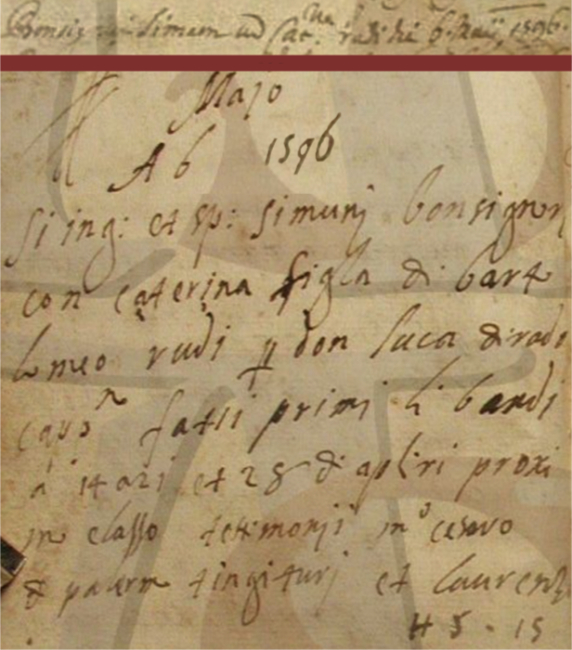 Bonsignuri Simun ud Cat.na rudi die 6 Maij 1596.
Majo
A 6 1596
Si ing: et sp: simunj bonsignor
con caterina figla di bart
lomeo rudi p don luca
fatti primj li bandi
a 14 et 28 di apliri proxi
in testimonij m.o cesaro
di tingiturj et laurenz